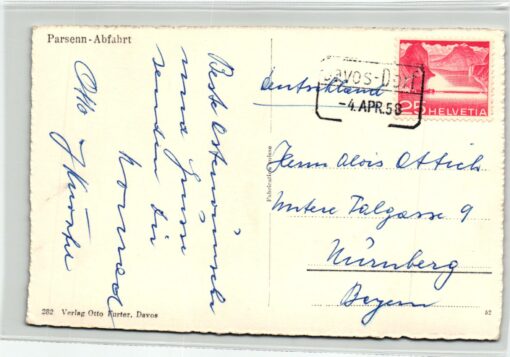 Parsenn-Abfahrt
Beste Osterwünsche
und Grüsse
senden Dir
Konrad
Otto
Deutschland
Davos-Dorf
-4.APR.58
25 HELVETIA
Herrn Alois Ottich
Untere Talgasse 9
Nürnberg
Bayern
282 Verlag Otto Furter, Davos
52